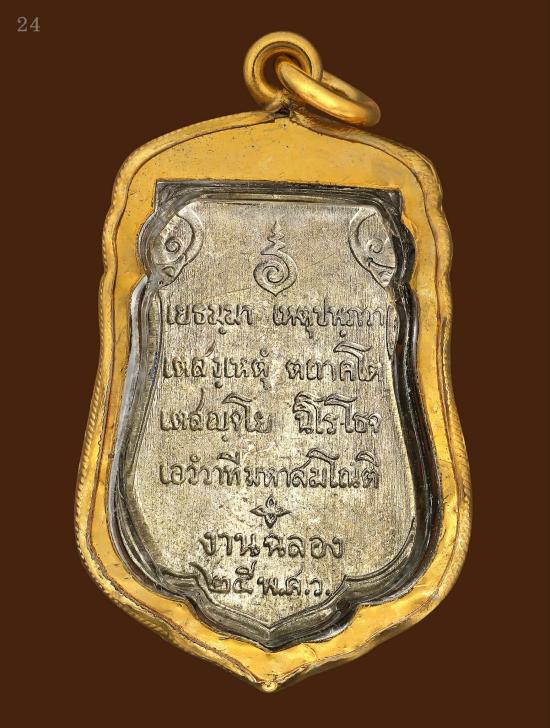 24
เยธมฺมา เหตุปฺปพฺภวา
เตสํ เหตุํ ตถาคโต
เตสญฺจโย นิโรโธจ
เอวํวาที มหาสมโณติ
งานฉลอง
๒๕ พ.ศ.ว.